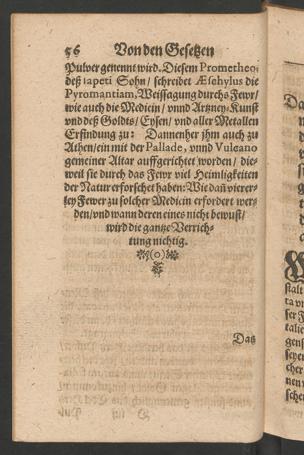 56 Von den Gesetzen
Pulver genennt wird. Diesem Prometheo,
deß iapeti Sohn / schreibet Æschylus die
Pyromantiam, Weissagung durchs Fewr /
wie auch die Medicin / vnnd Artzney-Kunst
vnd deß Goldts / Eysen / vnd aller Metallen
Erfindung zu: Dannenher jhm auch zu
Athen / ein mit der Pallade, vnnd Vulcano
gemeiner Altar auffgerichtet worden / die-
weil sie durch das Fewr viel Heimligkeiten
der Natur erforschet haben: Wie dañ vierer-
ley Fewer zu solcher Medicin erfordert wer-
den / vnd wann deren eines nicht bewust /
wird die gantze Verrich-
tung nichtig.
(o)
Das